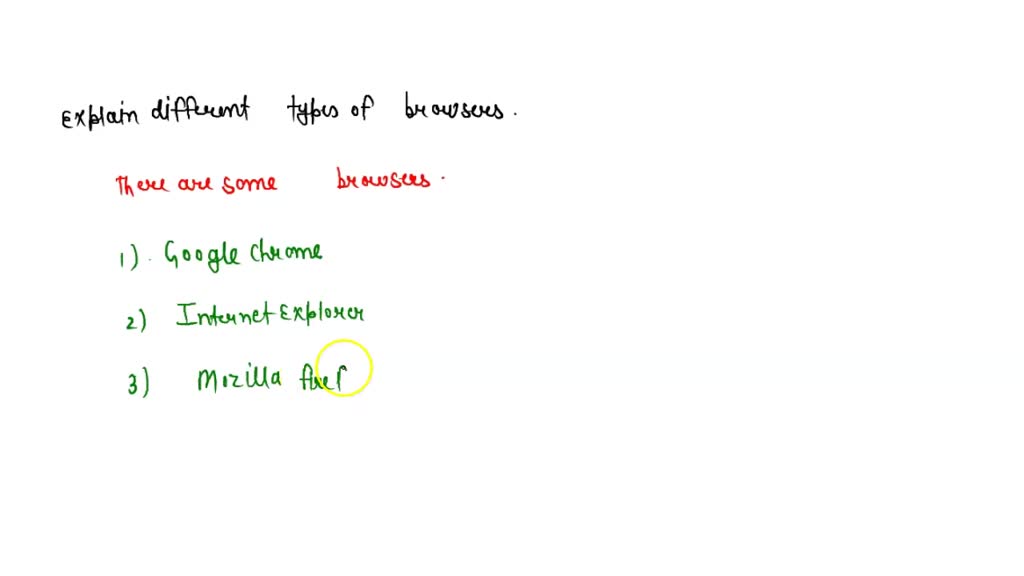 Explain different types of browsers.
There are some browsers.
1). Google Chrome
2) Internet Explorer
3) Mozilla